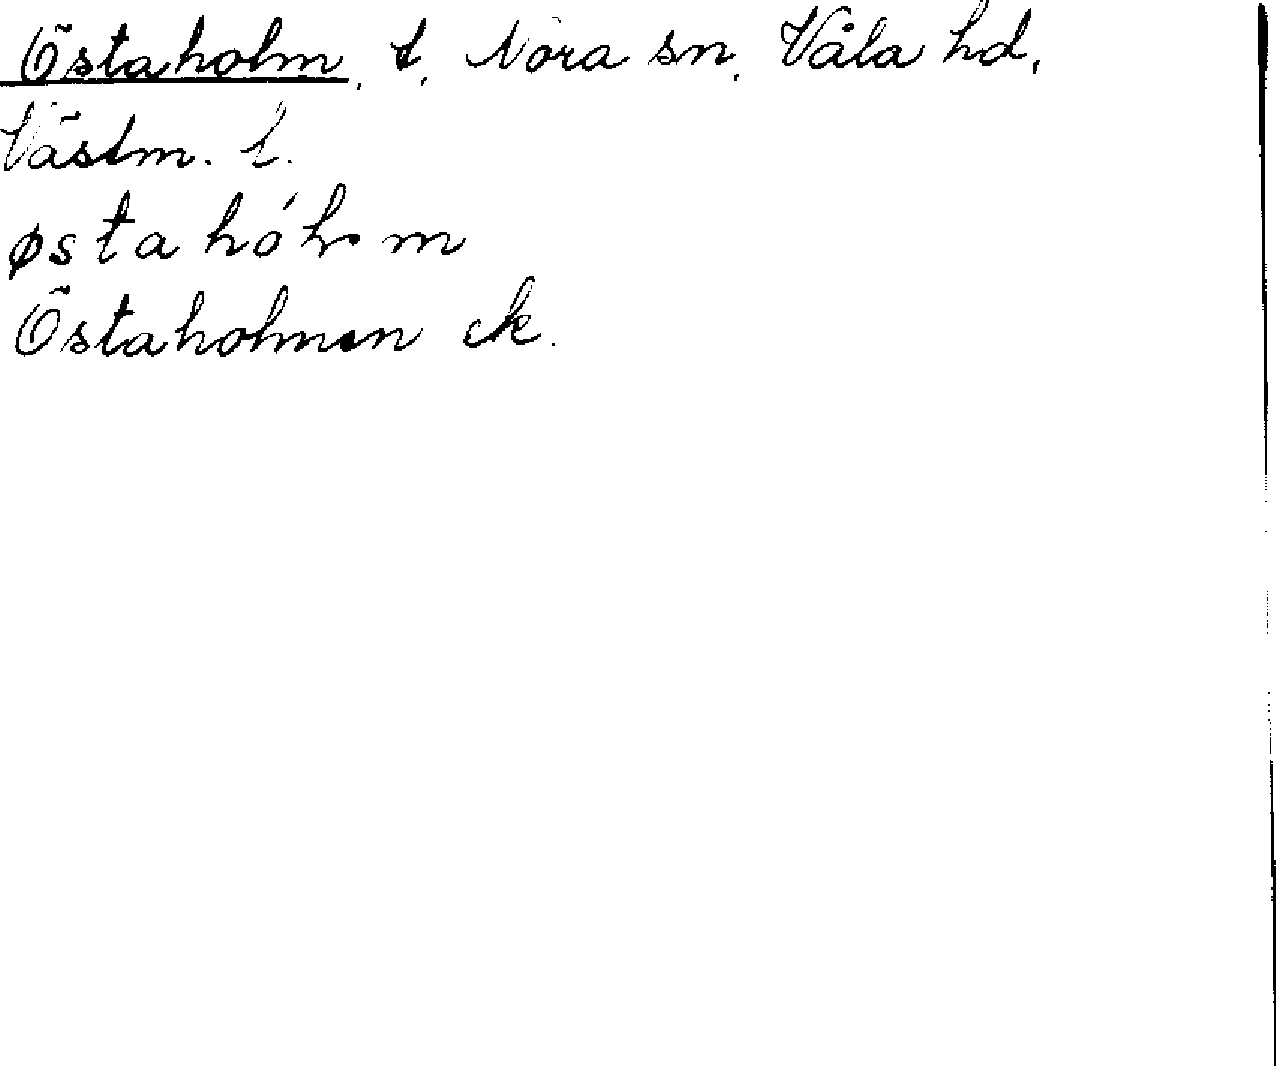 Östaholm, t, Nora sn, Våla hd,
Västm. l.
østa hól m
Östaholmen ek.